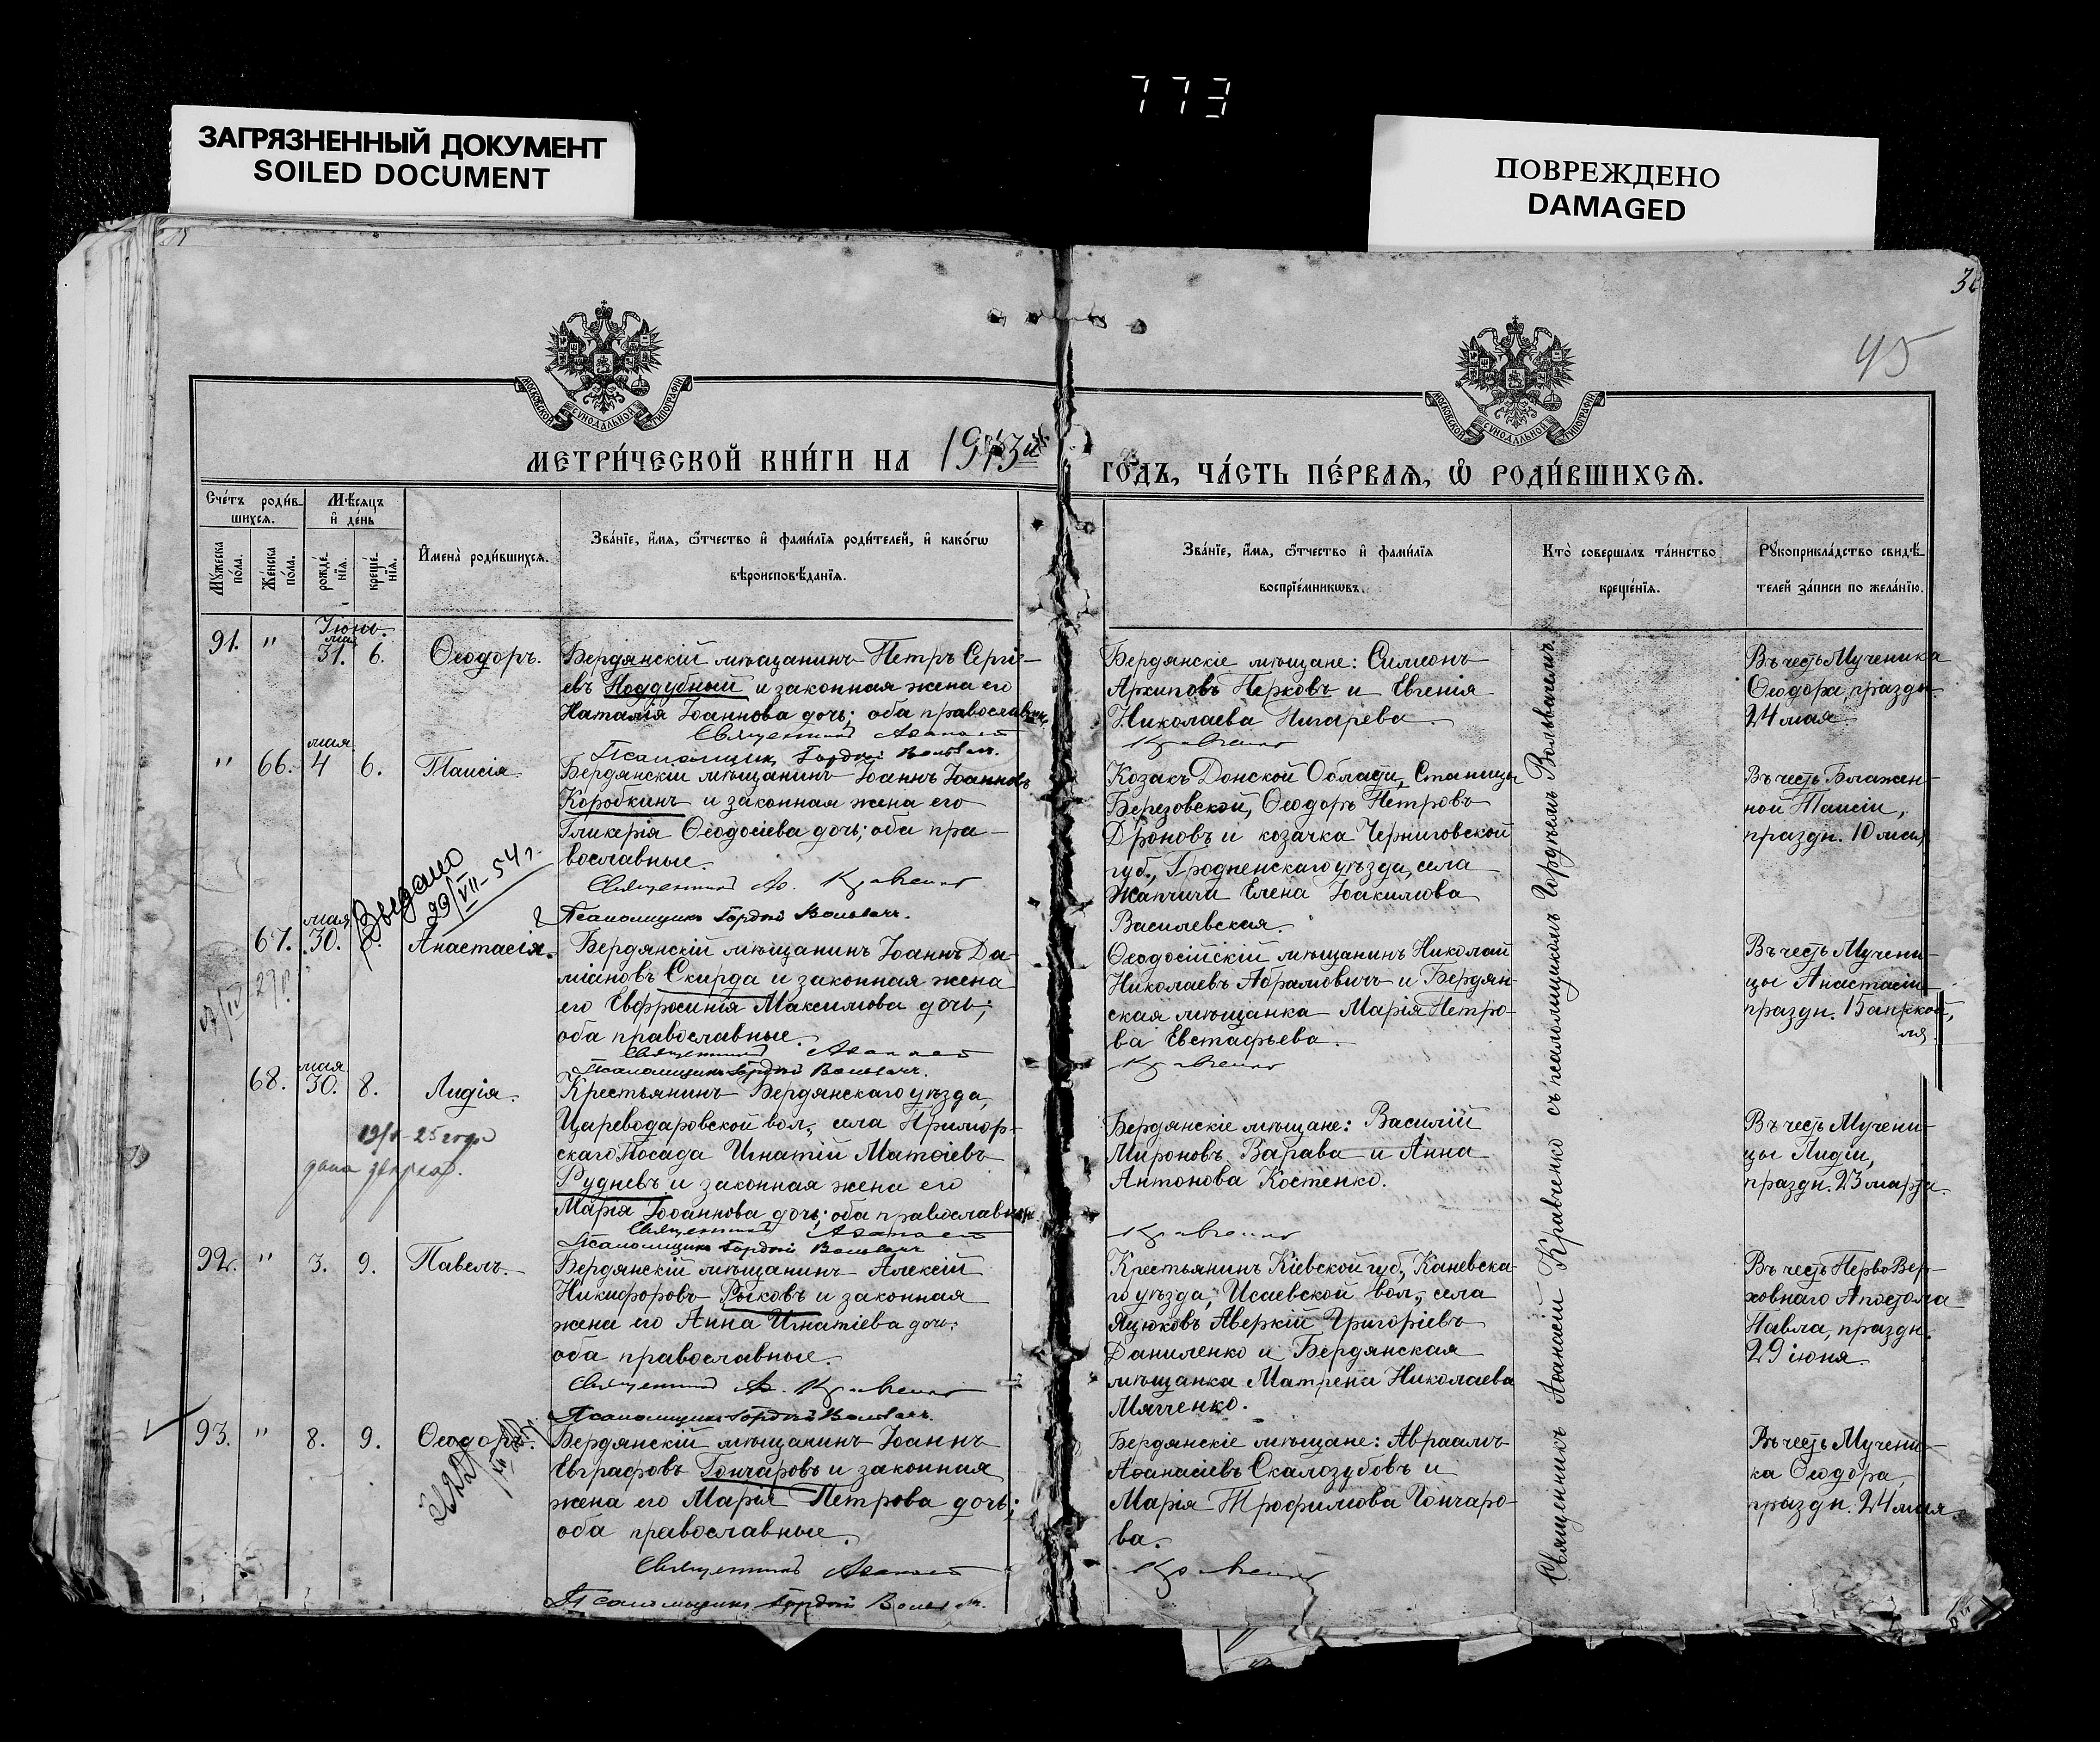 773
ЗАГРЯЗНЕННЫЙ ДОКУМЕНТ
SOILED DOCUMENT
ПОВРЕЖДЕНО
DAMAGED
45
МОСКОВСКОЙ СѴНОДАЛЬНОЙ ТИПОГРАФІИ
МОСКОВСКОЙ СѴНОДАЛЬНОЙ ТИПОГРАФІИ
МЕТРИ́ЧЕСКОЙ КНИ́ГИ НА 1913й
ГО́ДЪ, ЧА́СТЬ ПЕ́РВАѦ, Ѡ҆ РОДИ́ВШИХСѦ.
Сче́тъ роди́в-
шихсѧ.
Мѣ́сѧцъ
и҆ де́нь
Мꙋ́жеска
по́ла.
Же́нска
по́ла.
рожде́-
нїѧ.
креще́-
нїѧ.
И҆мена̀ роди́вшихсѧ.
Зва́нїе, и҆́мѧ, ѻ҆́тчество и҆ фами́лїѧ роди́телей, и҆ како́гѡ
вѣроисповѣ́данїѧ.
Зва́нїе, и҆́мѧ, ѻ҆́тчество и҆ фами́лїѧ
воспрїе́мникѡвъ.
Кто̀ соверша́лъ та́инство
креще́нїѧ.
Рꙋкоприкла́дство свидѣ́-
телей за́писи по жела́нїю.
Іюнь.
мая
91. " 31. 6. Ѳеодоръ.
Бердянскій мѣщанинъ Петръ Сергі-
евъ Поддубный и законная жена его
Наталія Іоаннова дочь; оба православн.
Священникъ Аѳанасій
Псаломщикъ Гордій Вольвачъ.
Бердянскіе мѣщане: Симеонъ
Архиповъ Перковъ и Евгенія
Николаева Пигарева.
Кравченко
Въ честь Мученика
Ѳеодора, праздн.
24 мая.
мая
" 66. 4 6. Таисія.
Бердянскій мѣщанинъ Іоаннъ Іоанновъ
Коробкинъ и законная жена его
Гликерія Ѳеодосіева дочь; оба пра-
вославные.
Священникъ Аѳ. Кравченко
Псаломщикъ Гордій Вольвачъ.
Козакъ Донской Области, Станицы
Березовской, Ѳеодоръ Петровъ
Дроновъ и козачка Черниговской
губ., Гродненскаго уѣзда, села
Жапчичи Елена Іоакимова
Василевская.
Въ честь Блажен-
ной Таисіи,
праздн. 10 мая
Выдано
29/VII-54 г.
мая
67. 30. Анастасія.
Бердянскій мѣщанинъ Іоаннъ Да-
міановъ Скирда и законная жена
его Евфросинія Максимова дочь;
оба православные.
Священникъ Аѳанасій
Псаломщикъ Гордій Вольвачъ.
Ѳеодосійскій мѣщанинъ Николай
Николаевъ Абрамовичъ и Бердян-
ская мѣщанка Марія Петро-
ва Евстафьева.
Кравченко
Въ честь Мучени-
цы Анастасіи,
праздн. 15 апрѣ-
ля
мая
68. 30. 8. Лидія.
Крестьянинъ Бердянскаго уѣзда,
Цареводаровской вол., села Примор-
скаго Посада Игнатій Матѳіевъ
Рудневъ и законная жена его
Марія Іоаннова дочь; оба православн.
Священникъ Аѳанасій
Псаломщикъ Гордій Вольвачъ
Бердянскіе мѣщане: Василій
Мироновъ Варава и Анна
Антонова Костенко.
Кравченко
Въ честь Мучени-
цы Лидіи,
праздн. 23 марта.
92. " 3. 9. Павелъ.
Бердянскій мѣщанинъ Алексій
Никифоровъ Рыковъ и законная
жена его Анна Игнатіева дочь;
оба православные.
Священникъ Аѳ. Кравченко
Псаломщикъ Гордій Вольвачъ.
Крестьянинъ Кіевской губ., Каневска-
го уѣзда, Исаевской вол., села
Яцюковъ Аверкій Григоріевъ
Даниленко и Бердянская
мѣщанка Матрена Николаева
Мягченко.
Въ честь Перво Вер-
ховнаго Апостола
Павла, праздн.
29 іюня.
93. " 8. 9. Ѳеодоръ.
Бердянскій мѣщанинъ Іоаннъ
Евграфовъ Гончаровъ и законная
жена его Марія Петрова дочь;
оба православные.
Священникъ Аѳанасій
Псаломщикъ Гордій Вольвачъ.
Бердянскіе мѣщане: Авраамъ
Аѳанасіевъ Скалозубовъ и
Марія Трофимова Гончаро-
ва.
Кравченко
Въ честь Мучени-
ка Ѳеодора,
праздн. 24 мая.
Священникъ Аѳанасій Кравченко съ псаломщикомъ Гордѣемъ Вольвачемъ.